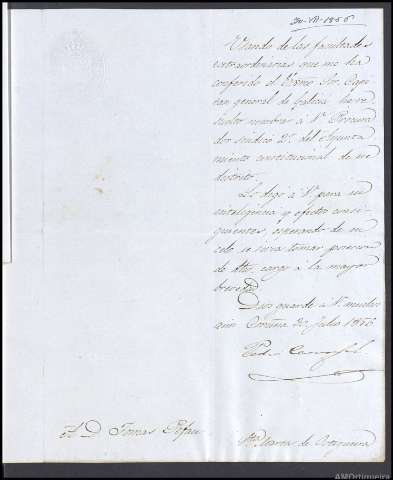 30-VII-1856
Usando de las facultades
extraordinarias que me ha
conferido el Exmo Sor. Capi-
tan general de Galicia he re-
suelto nombrar á V. Procura
dor sindico 2º. del Ayunta
miento constitucional de ese
distrito.
Lo digo á V. para su
inteligencia y efectos consi-
guientes, esperando de su
celo se sirva tomar
de dho. cargo á la mayor
brevedad
Dios guarde á V. muchos
Coruña 30 Julio 1856
A D. Tomas
Sta. Marta de Ortigueira
AMOrtigueira